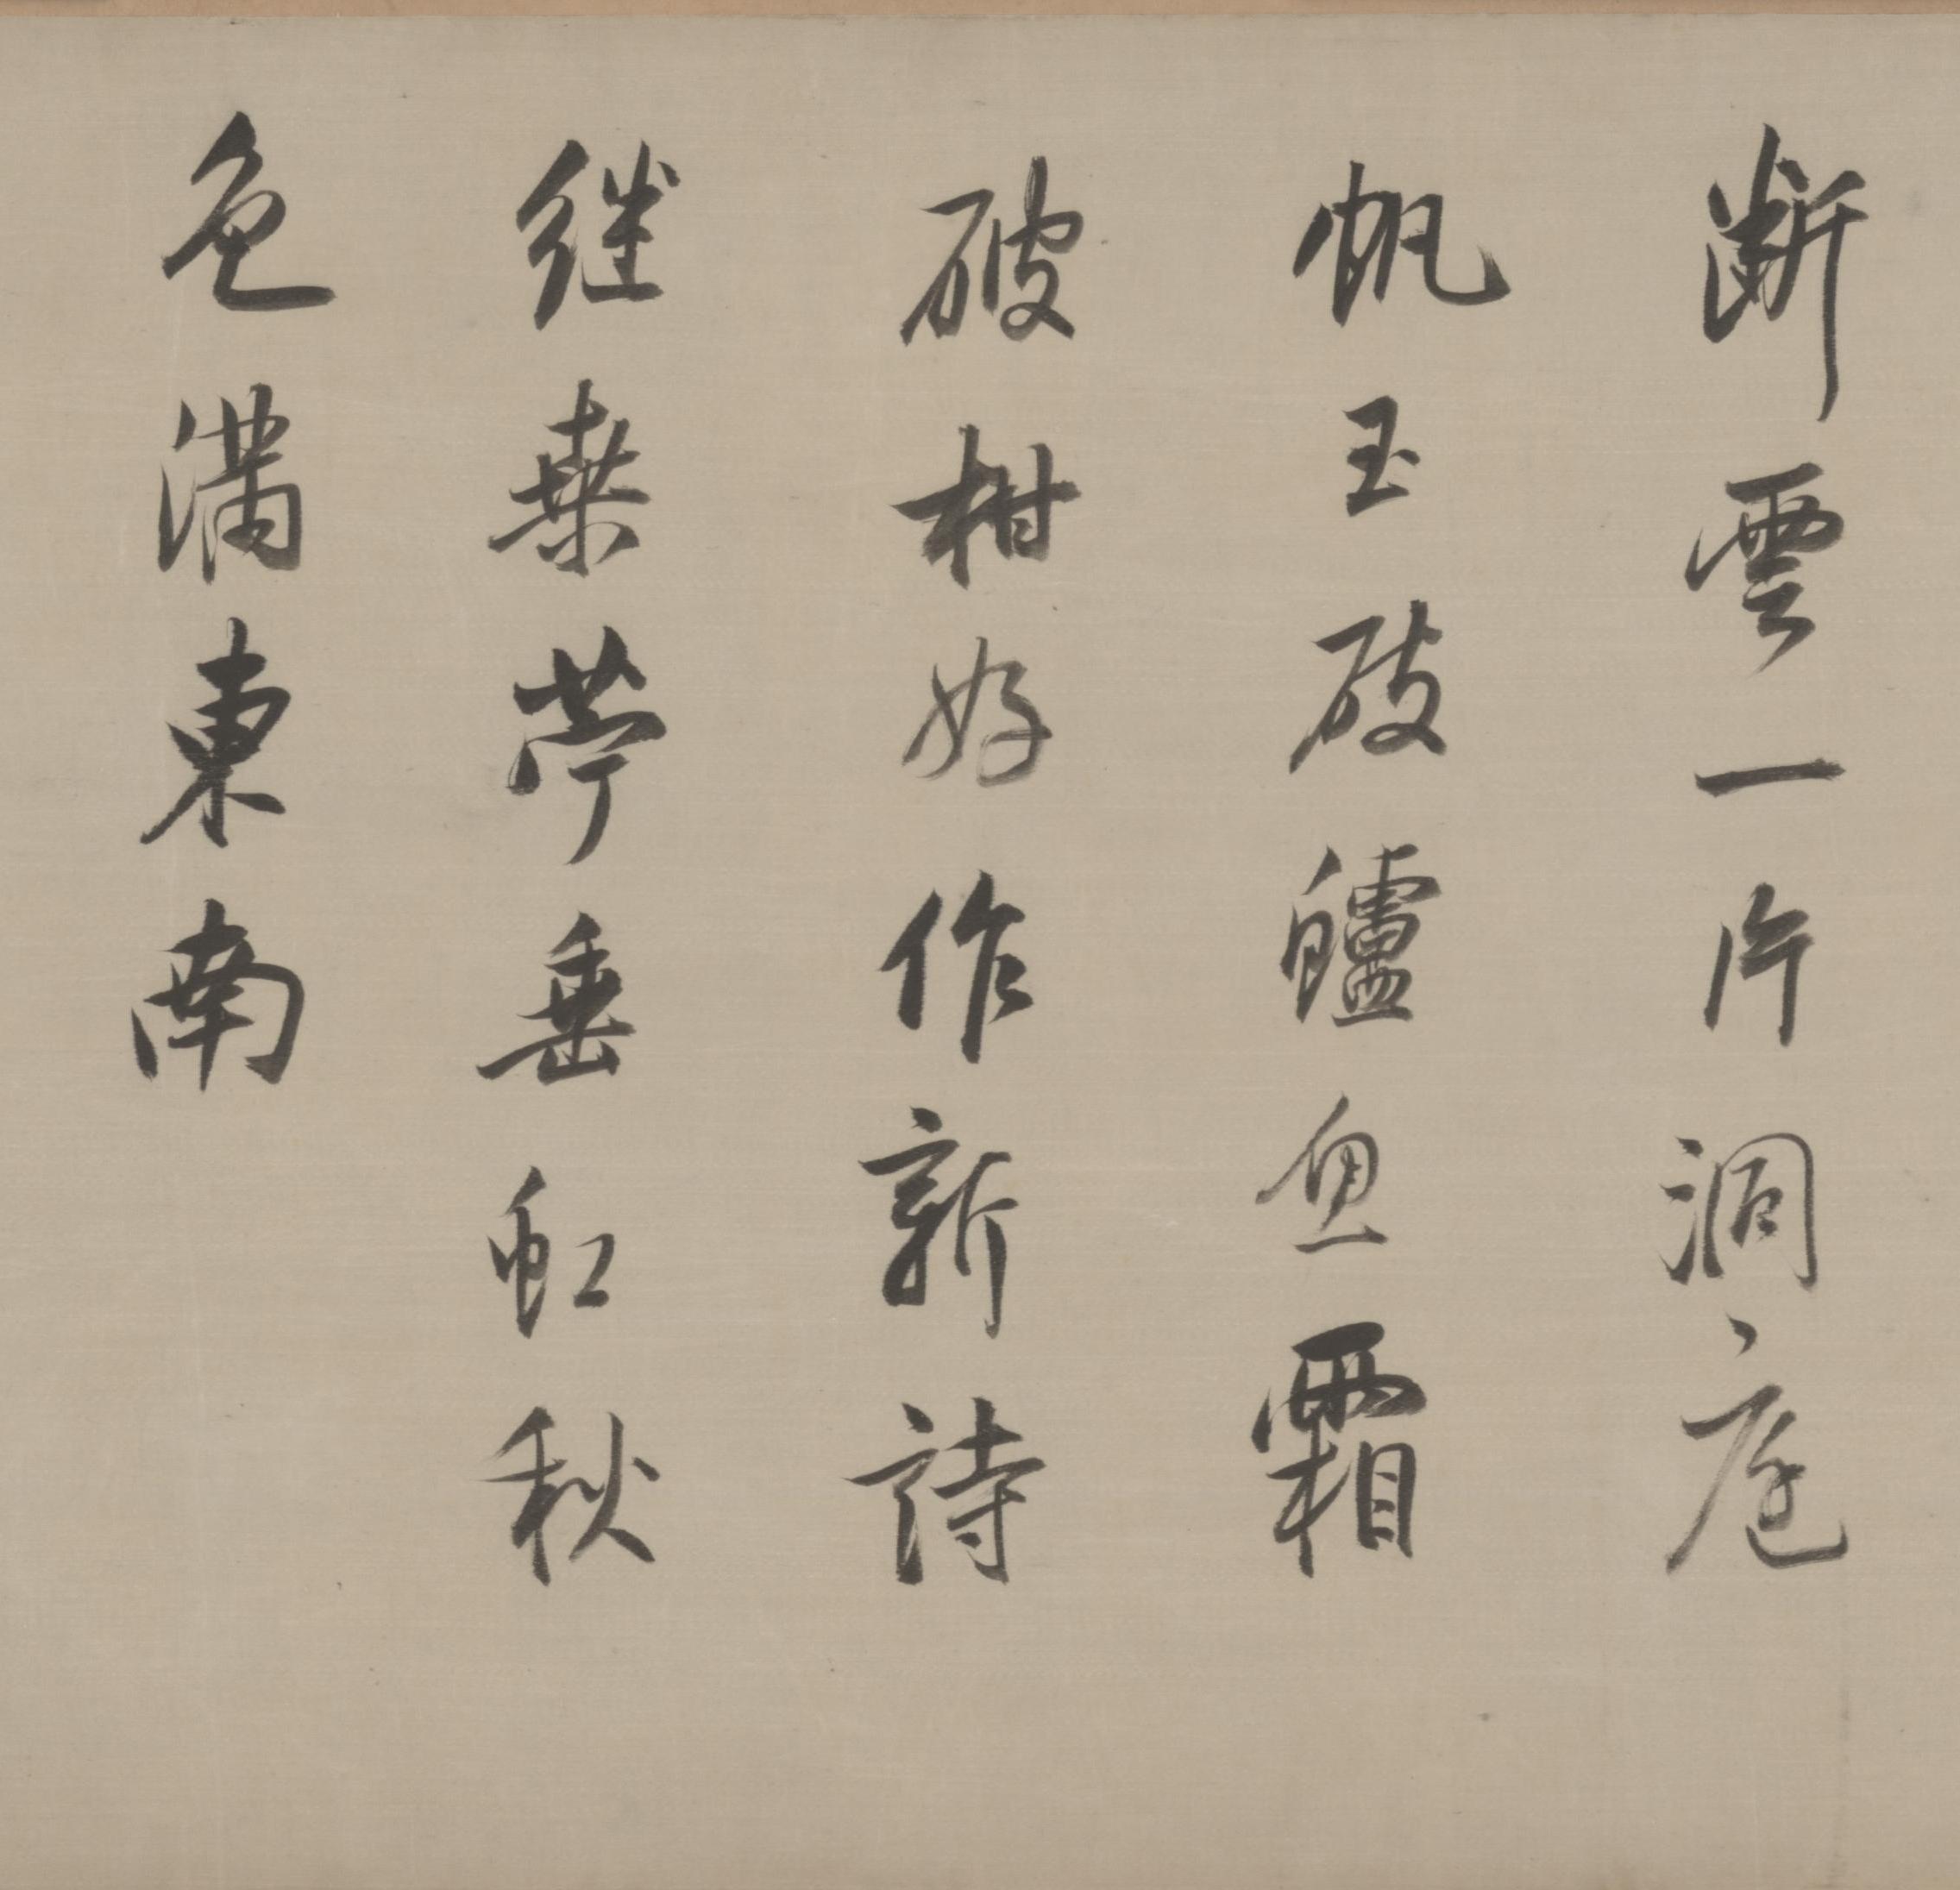 斷雲一片洞庭
帆玉破鱸魚霜
破柑好作新詩
继桒苧垂虹秋
色滿東南